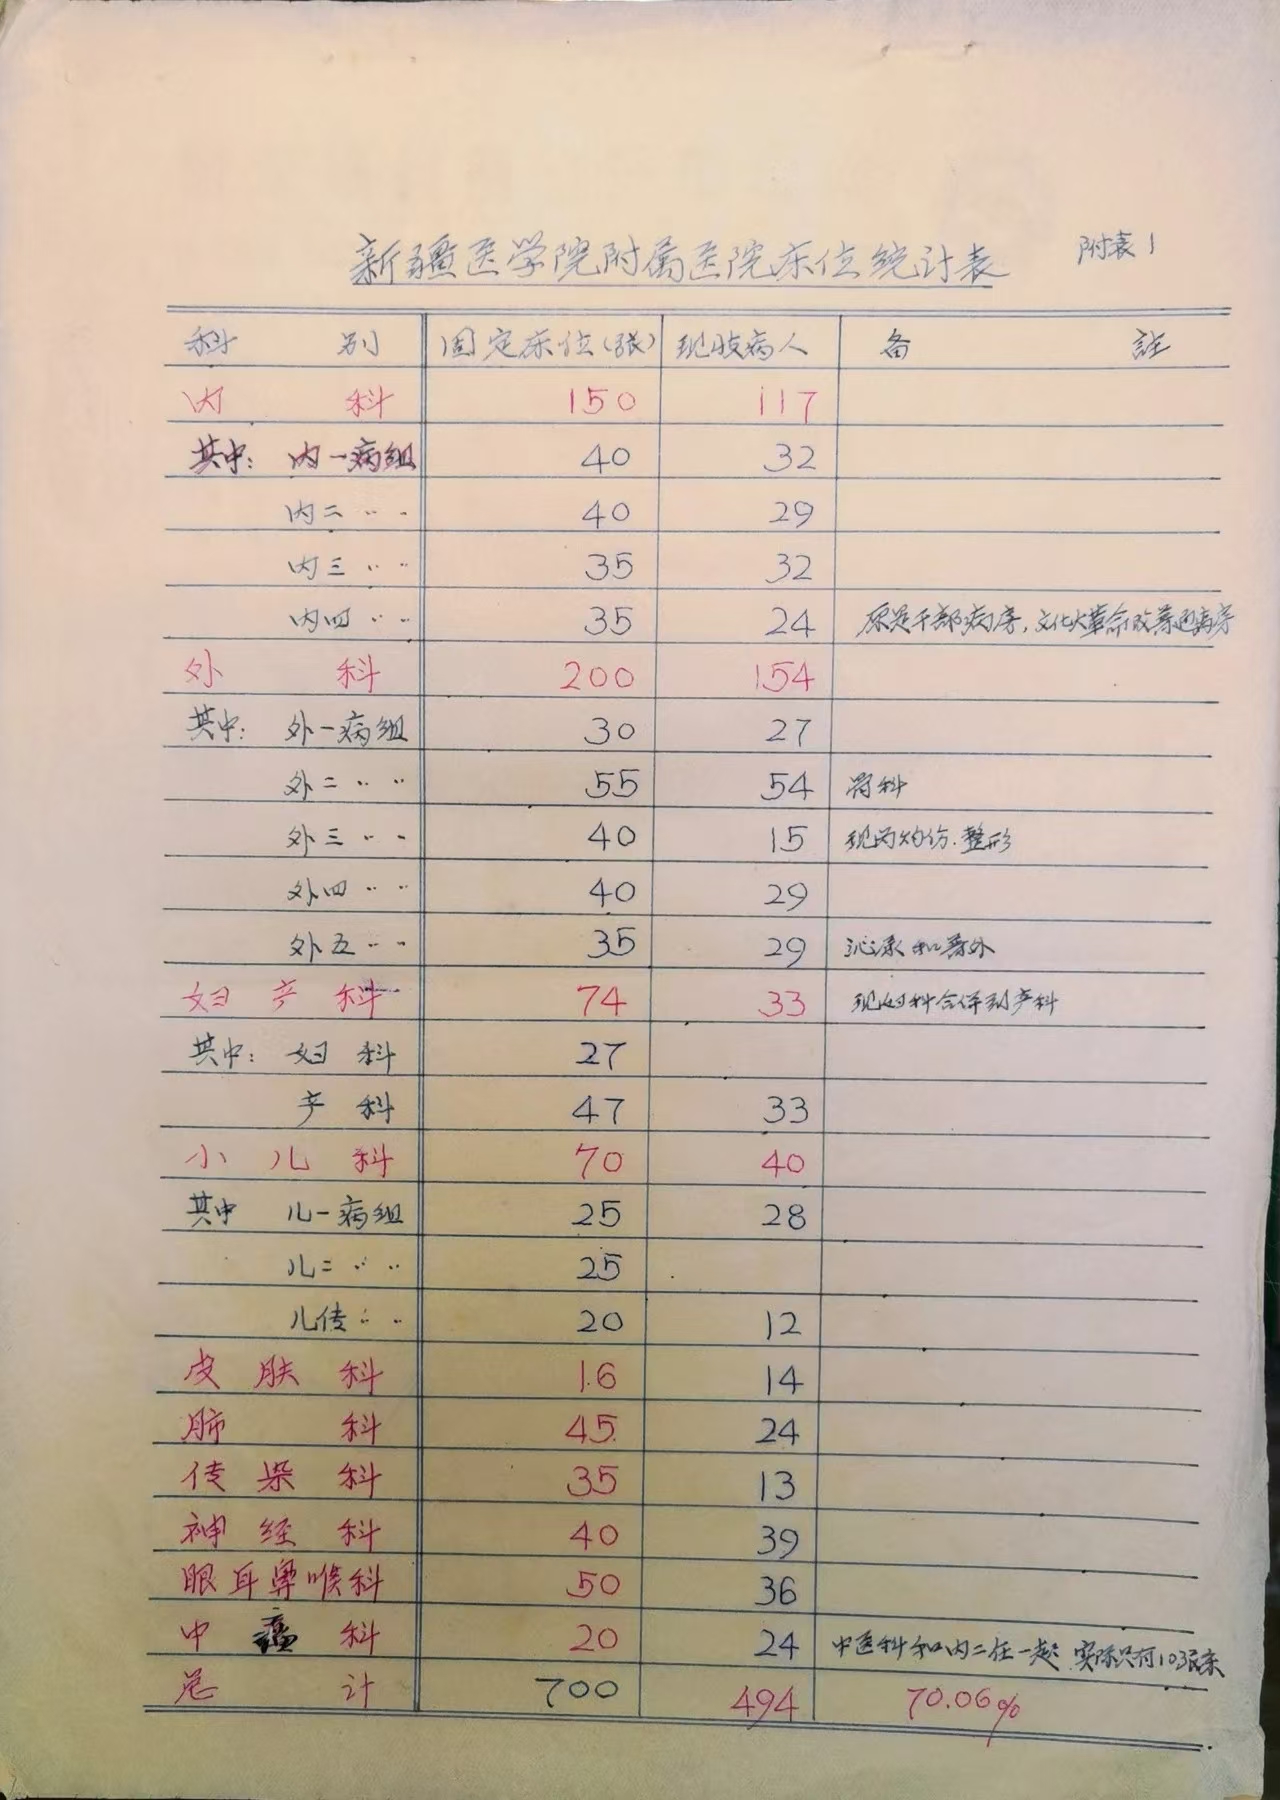 新疆医学院附属医院床位统计表 附表1
科 别 固定床位(张) 现收病人 备 註
内 科 150 117
其中: 内一病组 40 32
内二 〃 〃 40 29
内三 〃 〃 35 32
内四 〃 〃 35 24 原是干部病房,文化大革命改普通病房
外 科 200 154
其中: 外一病组 30 27
外二 〃 〃 55 54 骨科
外三 〃 〃 40 15 现为灼伤.整形
外四 〃 〃 40 29
外五 〃 〃 35 29 泌尿和普外
妇产科 74 33 现妇科合併到产科
其中: 妇科 27
产科 47 33
小儿科 70 40
其中 儿一病组 25 28
儿二 〃 〃 25
儿传 〃 〃 20 12
皮肤科 16 14
肺 科 45 24
传染科 35 13
神经科 40 39
眼耳鼻喉科 50 36
中 科 20 24 中医科和内二在一起 实际只有10张床
总 计 700 494 70.06%